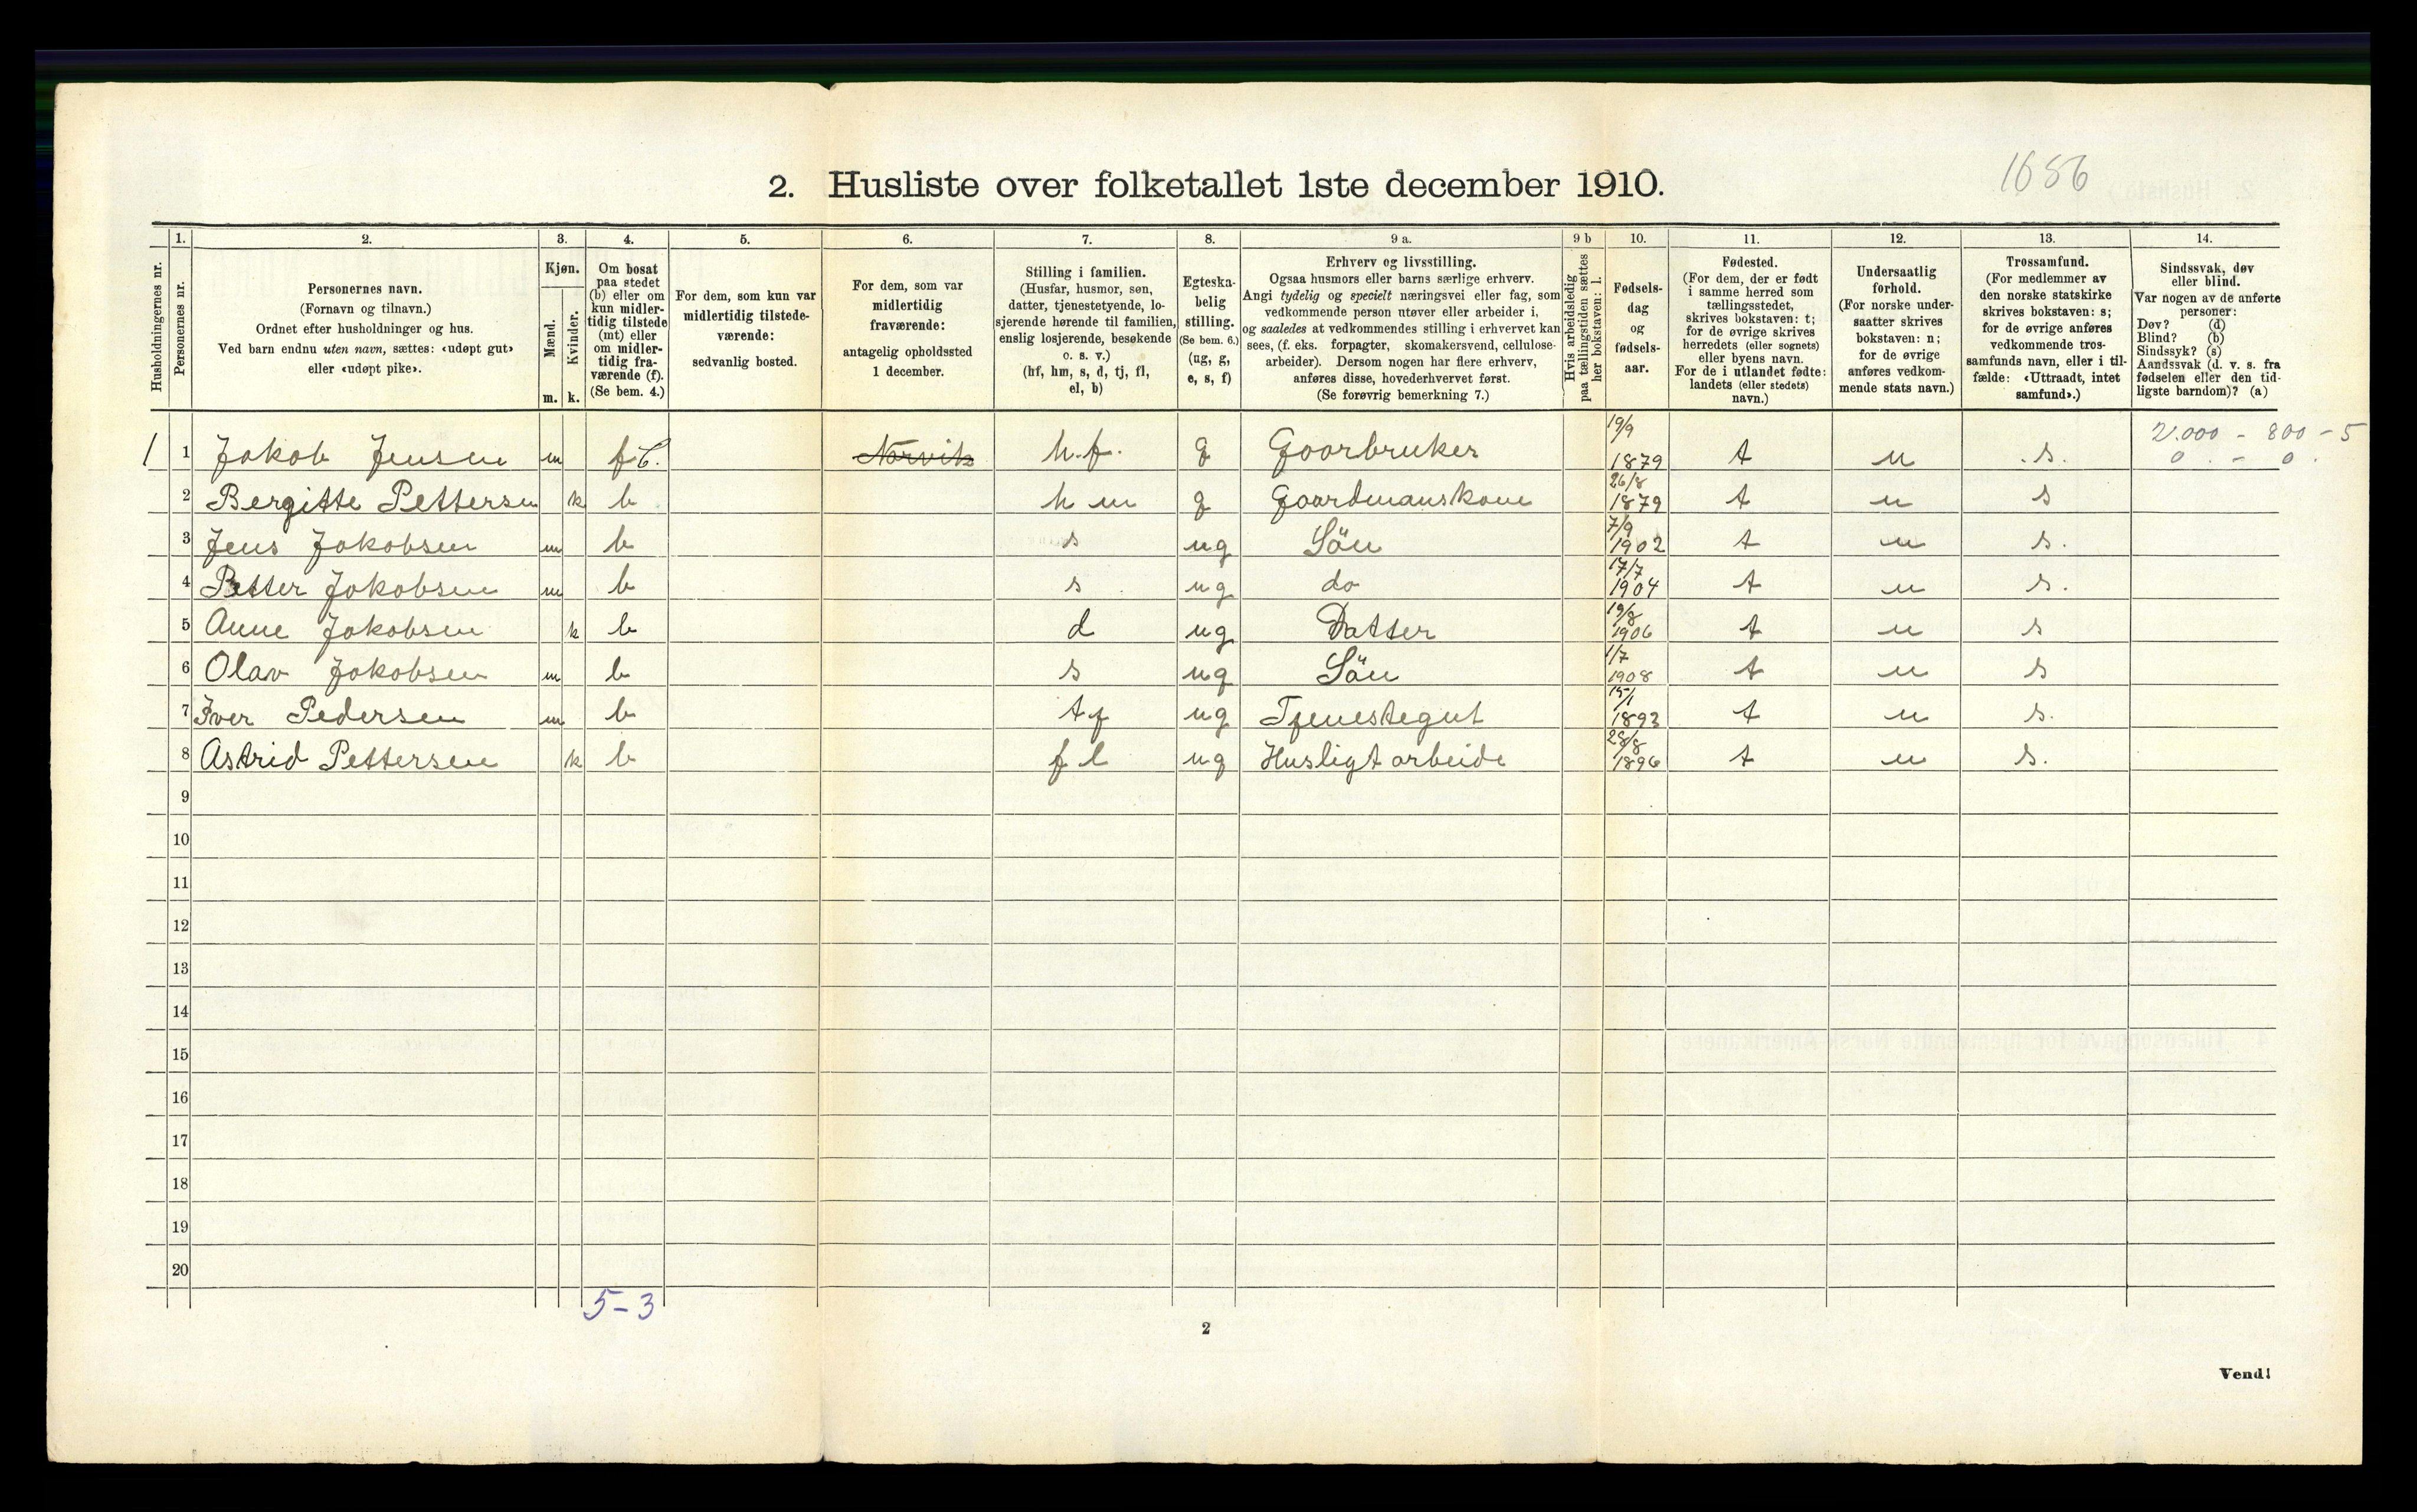 1686
2. Husliste over folketallet 1ste december 1910.
1. 2. 3. 4. 5. 6. 7. 8. 9 a. 9 b 10. 11. 12. 13. 14.
Husholdningernes nr.
Personernes nr.
Personernes navn.
(Fornavn og tilnavn.)
Ordnet efter husholdninger og hus.
Ved barn endnu uten navn, sættes: «udøpt gut»
eller «udøpt pike».
Kjøn.
Mænd.
Kvinder.
m. k.
Om bosat
paa stedet
(b) eller om
kun midler-
tidig tilstede
(mt) eller
om midler-
tidig fra-
værende (f).
(Se bem. 4.)
For dem, som kun var
midlertidig tilstede-
værende:
sedvanlig bosted.
For dem, som var
midlertidig
fraværende:
antagelig opholdssted
1 december.
Stilling i familien.
(Husfar, husmor, søn,
datter, tjenestetyende, lo-
sjerende hørende til familien,
enslig losjerende, besøkende
o. s. v.)
(hf, hm, s, d, tj, fl,
el, b)
Egteska-
belig
stilling.
(Se bem. 6.)
(ug, g,
e, s, f)
Erhverv og livsstilling.
Ogsaa husmors eller barns særlige erhverv.
Angi tydelig og specielt næringsvei eller fag, som
vedkommende person utøver eller arbeider i,
og saaledes at vedkommendes stilling i erhvervet kan
sees, (f. eks. forpagter, skomakersvend, cellulose-
arbeider). Dersom nogen har flere erhverv,
anføres disse, hovederhvervet først.
(Se forøvrig bemerkning 7.)
Hvis arbeidsledig
paa tællingstiden sættes
her bokstaven: l.
Fødsels-
dag
og
fødsels-
aar.
Fødested.
(For dem, der er født
i samme herred som
tællingsstedet,
skrives bokstaven: t;
for de øvrige skrives
herredets (eller sognets)
eller byens navn.
For de i utlandet fødte:
landets (eller stedets)
navn.)
Undersaatlig
forhold.
(For norske under-
saatter skrives
bokstaven: n;
for de øvrige
anføres vedkom-
mende stats navn.)
Trossamfund.
(For medlemmer av
den norske statskirke
skrives bokstaven: s;
for de øvrige anføres
vedkommende tros-
samfunds navn, eller i til-
fælde: «Uttraadt, intet
samfund».)
Sindssvak, døv
eller blind.
Var nogen av de anførte
personer:
Døv? (d)
Blind? (b)
Sindssyk? (s)
Aandssvak (d. v. s. fra
fødselen eller den tid-
ligste barndom)? (a)
1 1 Jakob Jensen m f b. Narvik h.f. g Gaarbruker 19/9 1879 t n s. 2.000 - 800 - 5
0 - 0.
2 Bergitte Pettersen k b h m g Gaardmanskone 26/8 1879 t n s
3 Jens Jakobsen m b s ug Sön 7/9 1902 t n s.
4 Petter Jakobsen m b s ug do 17/7 1904 t n s.
5 Anne Jakobsen k b d ug Datter 19/8 1906 t n s
6 Olav Jakobsen m b s ug Sön 1/7 1908 t n s
7 Iver Pedersen m b tj ug Tjenestegut 15/1 1893 t n s.
8 Astrid Pettersen k b f l ug Husligt arbeide 28/8 1896 t n s.
9
10
11
12
13
14
15
16
17
18
19
20
5-3
2
Vend!